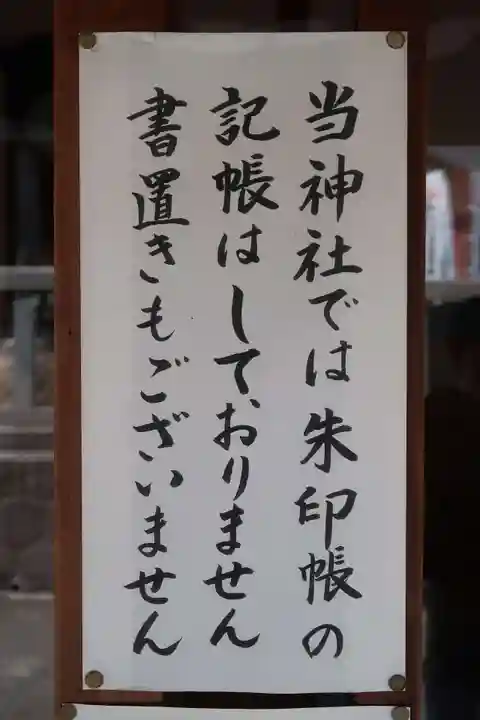 当神社では朱印帳の
記帳はしておりません
書置きもございません